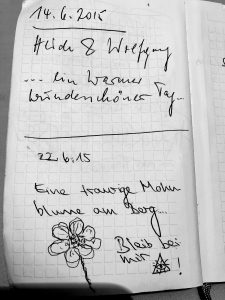 14.6.2015
Heidi & Wolfgang
... ein warmer
wunderschöner Tag...
22.6.15
Eine traurige Mohn
blume am Berg...
Bleib bei
mir !